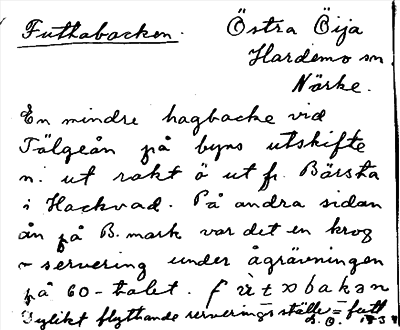 Futtabacken. Östra Öija
Hardemo sn
Närke.
En mindre hagbacke vid
Tälgeån på byns utskifte
n. ut rakt ö ut fr. Bärsta
i Hackvad. På andra sidan
ån på B. mark var det en krog
servering under ågrävningen
på 60-talet.
dylikt flyttande serveringsställe = futt